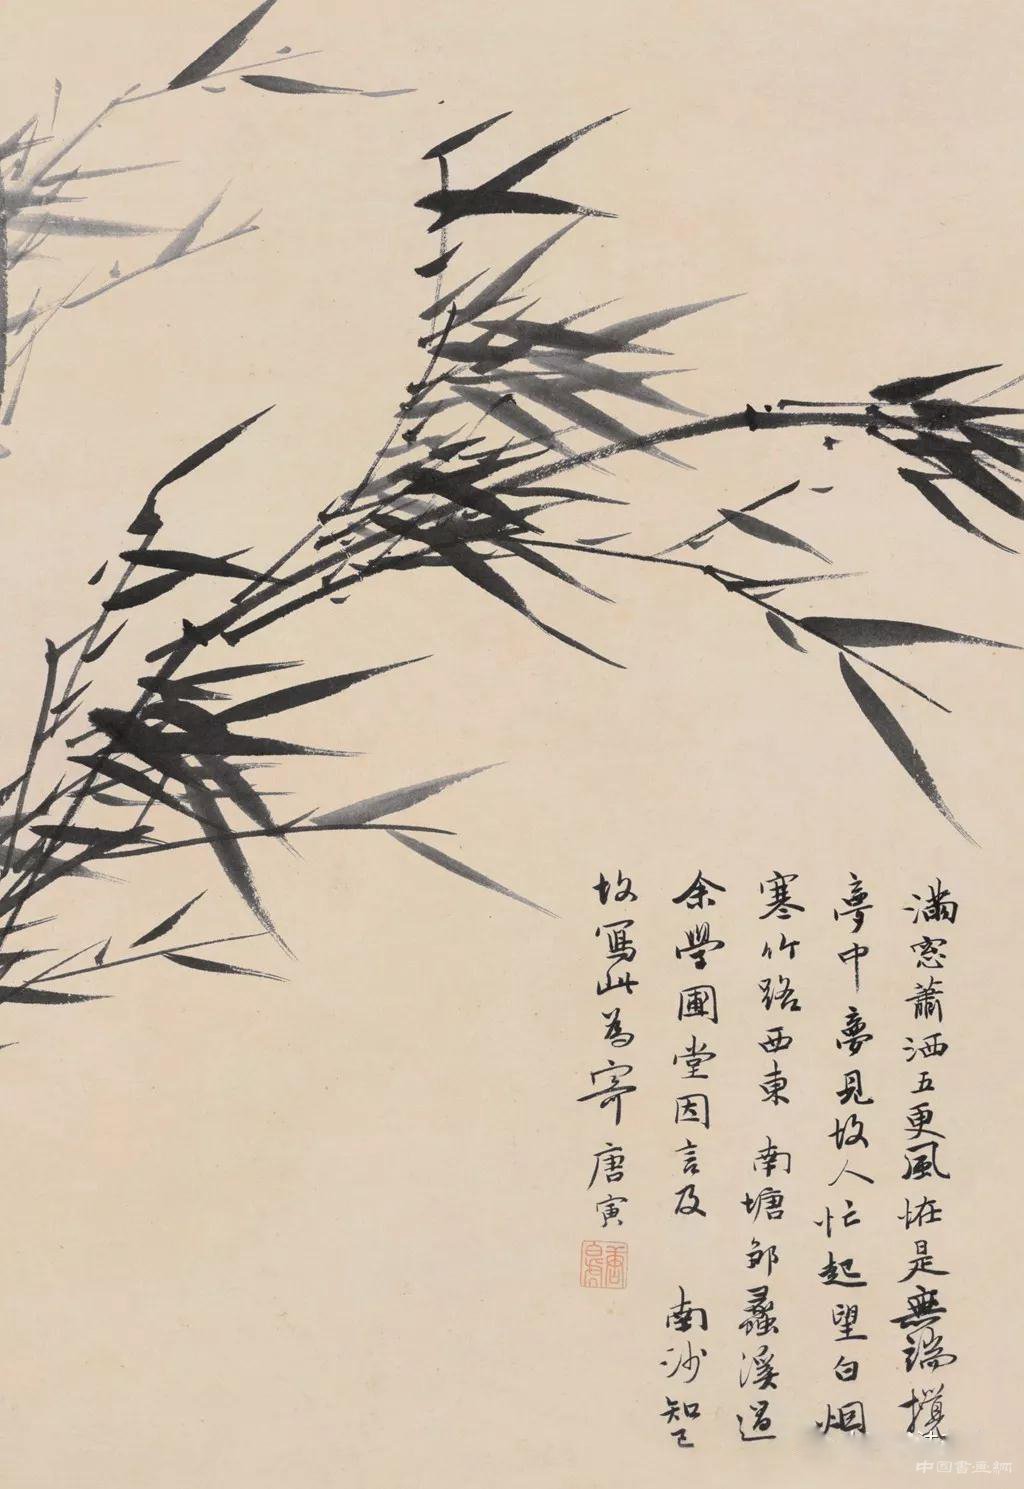 滿窓蕭洒五更風恠是無端攪
夢中夢見故人忙起望白烟
寒竹路西東 南塘邹蠡溪過
余學圃堂因言及 南沙知己
故寫此為寄 唐寅
唐寅
中国書画網